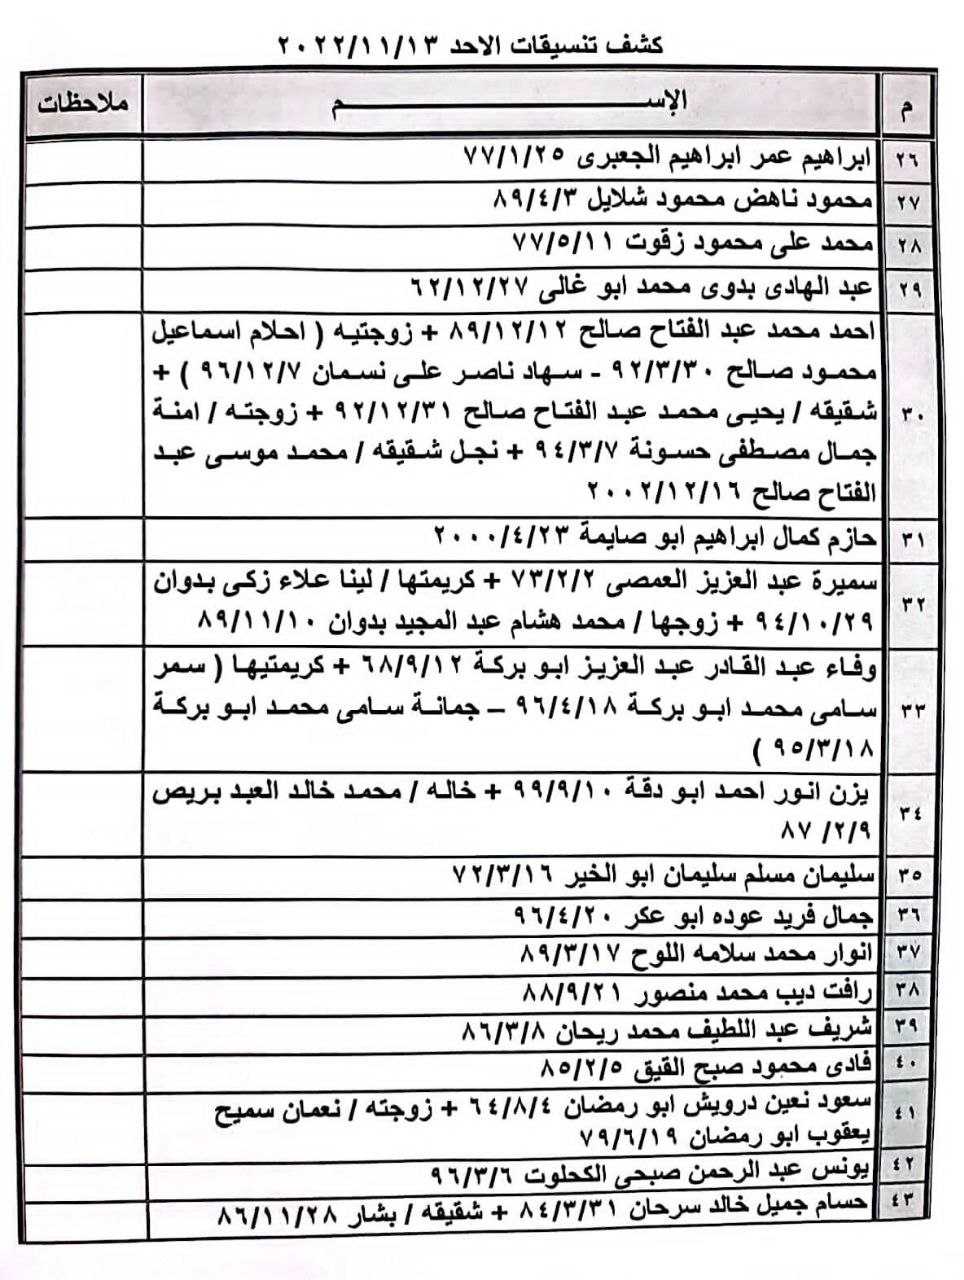 كشف تنسيقات الاحد ٢٠٢٢/١١/١٣
م الإســـــم ملاحظات
٢٦ ابراهيم عمر ابراهيم الجعبرى ٧٧/١/٢٥
٢٧ محمود ناهض محمود شلايل ٨٩/٤/٣
٢٨ محمد على محمود زقوت ٧٧/٥/١١
٢٩ عبد الهادى بدوى محمد ابو غالى ٦٢/١٢/٢٧
٣٠ احمد محمد عبد الفتاح صالح ٨٩/١٢/١٢ + زوجتيه ( احلام اسماعيل
محمود صالح ٩٢/٣/٣٠ - سهاد ناصر على نسمان ٩٦/١٢/٧ ) +
شقيقه / يحيى محمد عبد الفتاح صالح ٩٢/١٢/٣١ + زوجته / امنة
جمال مصطفى حسونة ٩٤/٣/٧ + نجل شقيقه / محمد موسى عبد
الفتاح صالح ٢٠٠٢/١٢/١٦
٣١ حازم كمال ابراهيم ابو صايمة ٢٠٠٠/٤/٢٣
٣٢ سميرة عبد العزيز العمصى ٧٣/٢/٢ + كريمتها / لينا علاء زكى بدوان
٩٤/١٠/٢٩ + زوجها / محمد هشام عبد المجيد بدوان ٨٩/١١/١٠
٣٣ وفاء عبد القادر عبد العزيز ابو بركة ٦٨/٩/١٢ + كريمتيها ( سمر
سامى محمد ابو بركة ٩٦/٤/١٨ – جمانة سامى محمد ابو بركة
٩٥/٣/١٨ )
٣٤ يزن انور احمد ابو دقة ٩٩/٩/١٠ + خاله / محمد خالد العبد بريص
٨٧ /٢/٩
٣٥ سليمان مسلم سليمان ابو الخير ٧٢/٣/١٦
٣٦ جمال فريد عوده ابو عكر ٩٦/٤/٢٠
٣٧ انوار محمد سلامه اللوح ٨٩/٣/١٧
٣٨ رافت ديب محمد منصور ٨٨/٩/٢١
٣٩ شريف عبد اللطيف محمد ريحان ٨٦/٣/٨
٤٠ فادى محمود صبح القيق ٨٥/٢/٥
٤١ سعود نعين درويش ابو رمضان ٦٤/٨/٤ + زوجته / نعمان سميح
يعقوب ابو رمضان ٧٩/٦/١٩
٤٢ يونس عبد الرحمن صبحى الكحلوت ٩٦/٣/٦
٤٣ حسام جميل خالد سرحان ٨٤/٣/٣١ + شقيقه / بشار ٨٦/١١/٢٨